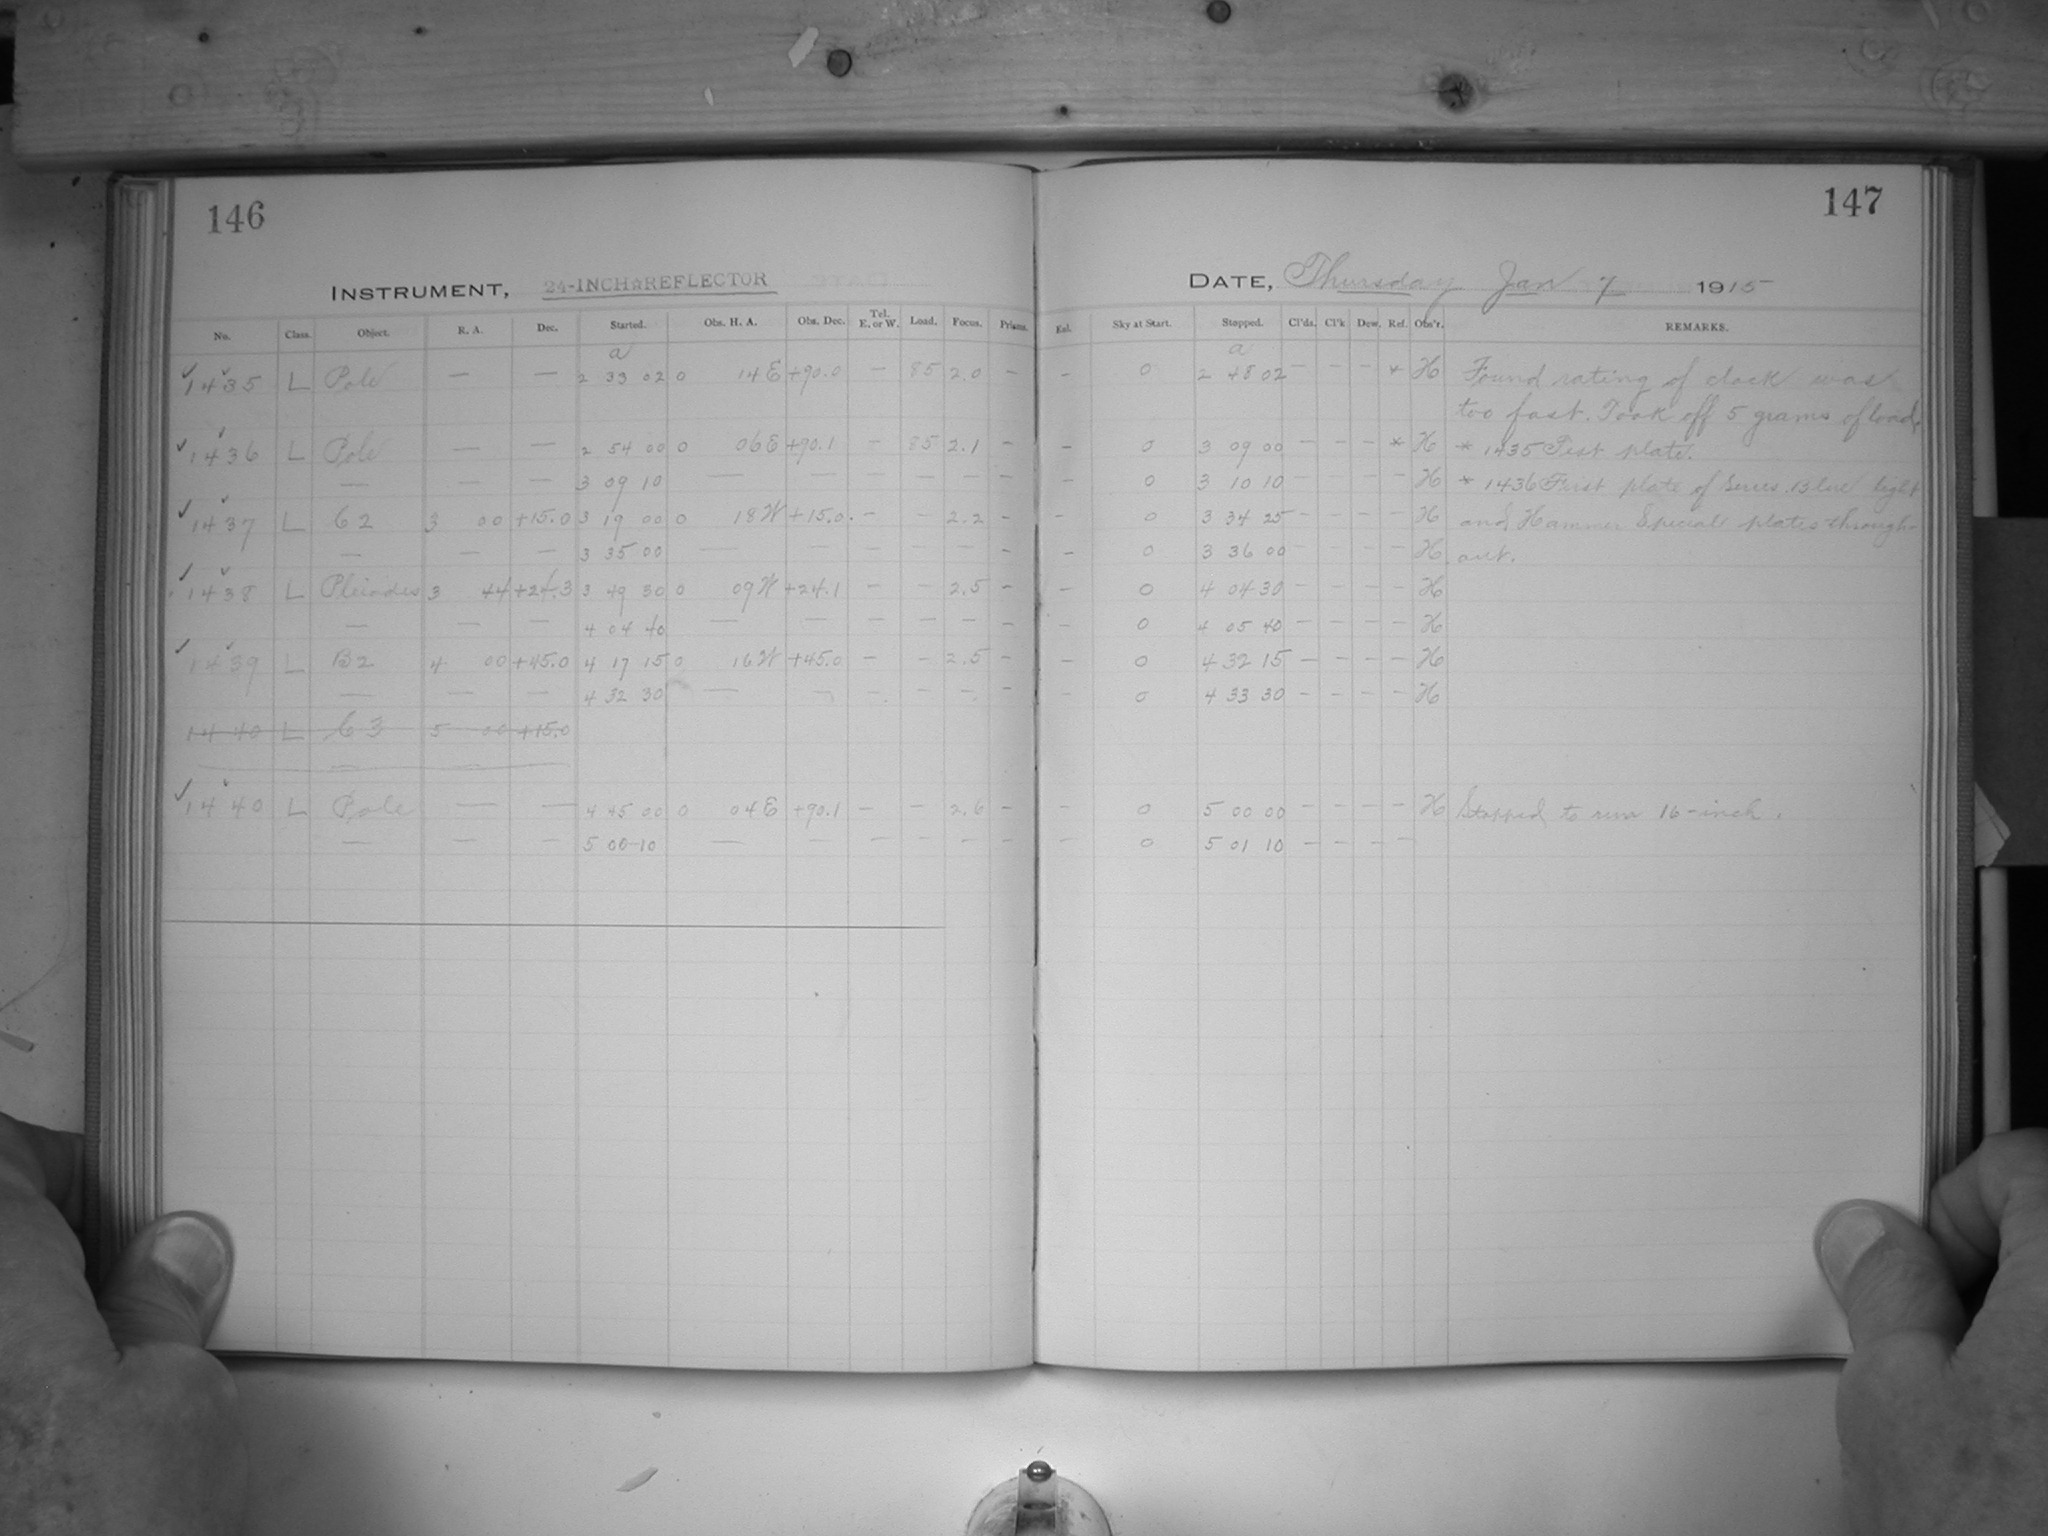 146
147
INSTRUMENT, 24-INCH REFLECTOR
DATE, Thursday Jan 7 1915
No. Class. Object. R. A. Dec. Started. Obs. H. A. Obs. Dec. Tel. E. or W. Load. Focus. Prisms. Exl. Sky at Start. Stopped. Cl'ds. Cl'k Dew. Ref. Obs'r. REMARKS.
a a
1435 L Pole — — 2 33 02 0 14 E +90.0 — 85 2.0 — — 0 2 48 02 — — — * H Found rating of clock was
too fast. Took off 5 grams of load.
1436 L Pole — — 2 54 00 0 06 E +90.1 — 85 2.1 — — 0 3 09 00 — — — * H * 1435 Test plate.
— — — 3 09 10 — — — — — — — 0 3 10 10 — — — — H * 1436 First plate of Series. Blue light
1437 L C2 3 00 +15.0 3 19 00 0 18 W +15.0 — — 2.2 — — 0 3 34 25 — — — — H and Hammer Special plates through-
— — — 3 35 00 — — — — — — — 0 3 36 00 — — — — H out.
1438 L Pleiades 3 44 +24.3 3 49 30 0 09 W +24.1 — — 2.5 — — 0 4 04 30 — — — — H
— — — 4 04 40 — — — — — — — 0 4 05 40 — — — — H
1439 L B2 4 00 +45.0 4 17 15 0 16 W +45.0 — — 2.5 — — 0 4 32 15 — — — — H
— — — 4 32 30 — — — — — — — 0 4 33 30 — — — — H
1440 L C3 5 00 +15.0
1440 L Pole — — 4 45 00 0 04 E +90.1 — — 2.6 — — 0 5 00 00 — — — — H Stopped to run 16-inch.
— — — 5 00 10 — — — — — — — 0 5 01 10 — — — —